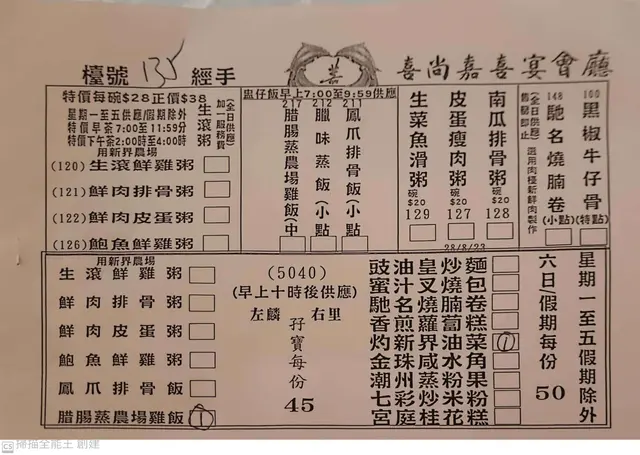 檯號 135 經手 喜尚嘉喜宴會廳
特價每碗$28正價$38
星期一至五供應/假期除外
特價早茶7:00至11:59分
特價下午茶2:00時至4:00時
生滾粥
(全日供應)
加一服務費
用新界農場
(120) 生滾鮮雞粥
(121) 鮮肉排骨粥
(122) 鮮肉皮蛋粥
(126) 鮑魚鮮雞粥
盅仔飯早上7:00至9:59供應
217 腊腸蒸農場雞飯(中
212 臘味蒸飯(小點)
211 鳳爪排骨飯(小點)
生菜魚滑粥 碗$20 129
皮蛋瘦肉粥 碗$20 127
南瓜排骨粥 碗$20 128
148 馳名燒腩卷(小點)
(全日供應) 選用肉檯新鮮肉製作
售罄即止
100 黑椒牛仔骨(特點)
28/8/23
用新界農場
生滾鮮雞粥
鮮肉排骨粥
鮮肉皮蛋粥
鮑魚鮮雞粥
鳳爪排骨飯
腊腸蒸農場雞飯 1
(5040)
(早上十時後供應)
左麟右里
孖寶每份
45
豉油皇炒麵
蜜汁叉燒包
馳名燒腩卷
香煎蘿蔔糕
灼新界油菜 1
金珠咸水角
潮州蒸粉果
七彩炒米粉
宮庭桂花糕
星期一至五假期除外
六日假期每份 50
CS 掃描全能王 創建